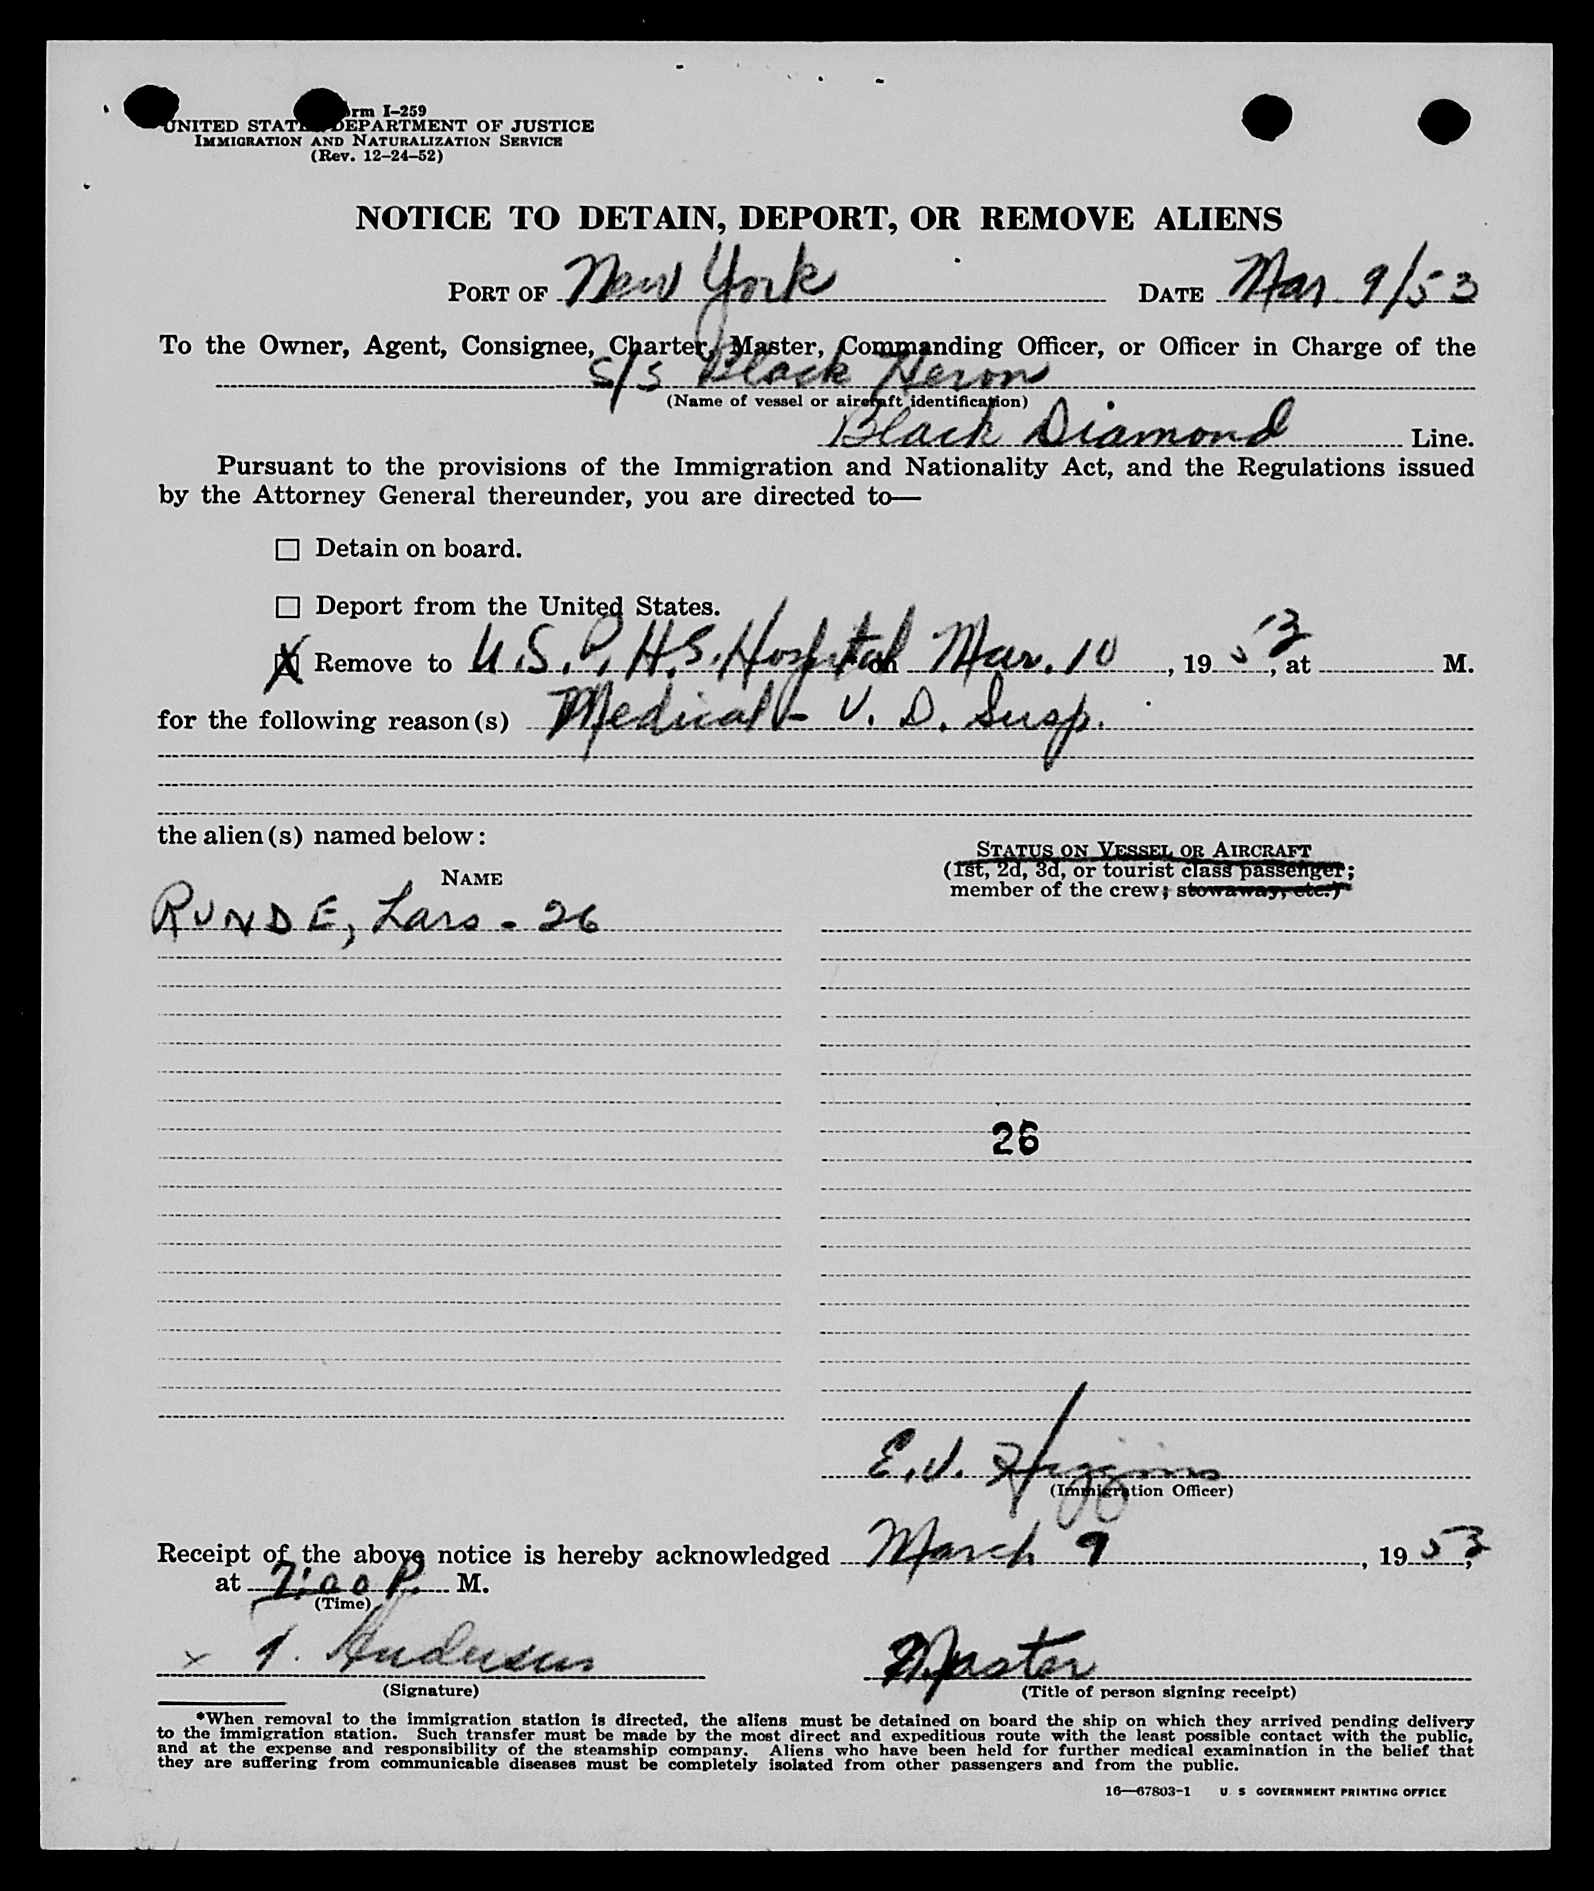 rm I-259
UNITED STATES DEPARTMENT OF JUSTICE
IMMIGRATION AND NATURALIZATION SERVICE
(Rev. 12-24-52)
NOTICE TO DETAIN, DEPORT, OR REMOVE ALIENS
PORT OF New York DATE Mar 9/53
To the Owner, Agent, Consignee, Charter, Master, Commanding Officer, or Officer in Charge of the
S/S Black Heron
(Name of vessel or aircraft identification)
Black Diamond Line.
Pursuant to the provisions of the Immigration and Nationality Act, and the Regulations issued
by the Attorney General thereunder, you are directed to—
Detain on board.
Deport from the United States.
X Remove to U.S.P.H.S. Hospital on Mar. 10, 19 53, at M.
for the following reason(s) Medical - V. D. Susp.
the alien(s) named below:
NAME
RUNDE, Lars - 26
STATUS ON VESSEL OR AIRCRAFT
(1st, 2d, 3d, or tourist class passenger;
member of the crew; stowaway, etc.)
26
E. V. Higgins
(Immigration Officer)
Receipt of the above notice is hereby acknowledged March 9, 19 53,
at 7:00 P. M.
(Time)
x T. Andersen
(Signature)
Master
(Title of person signing receipt)
*When removal to the immigration station is directed, the aliens must be detained on board the ship on which they arrived pending delivery
to the immigration station. Such transfer must be made by the most direct and expeditious route with the least possible contact with the public,
and at the expense and responsibility of the steamship company. Aliens who have been held for further medical examination in the belief that
they are suffering from communicable diseases must be completely isolated from other passengers and from the public.
16—67803-1 U S GOVERNMENT PRINTING OFFICE